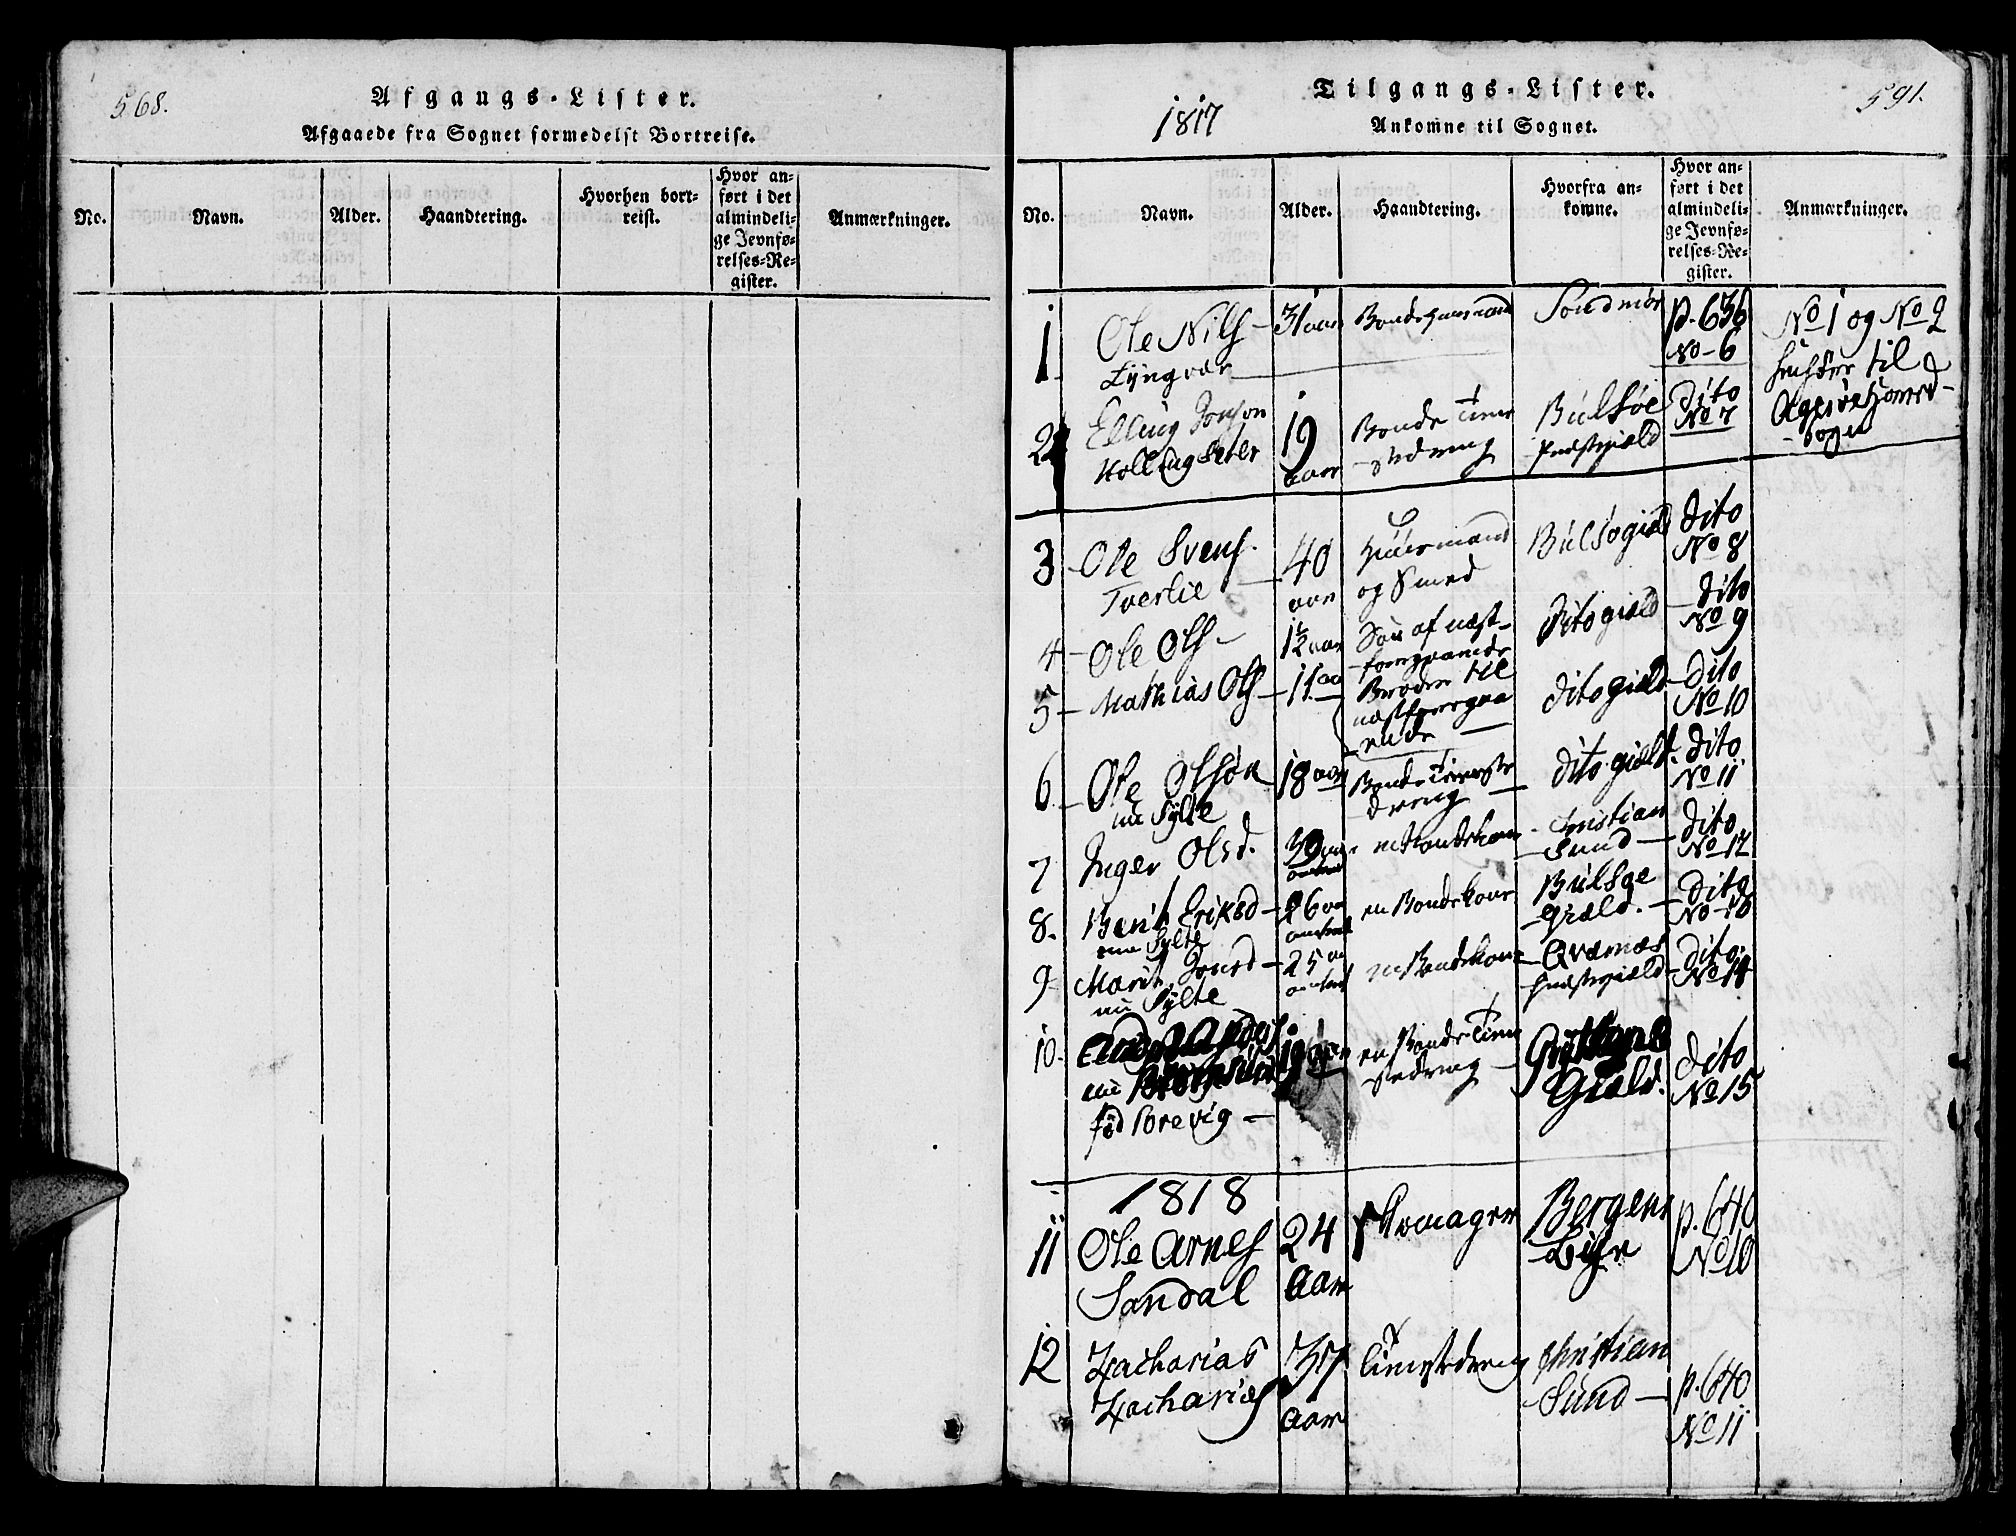 568.
Afgangs-Lister.
Afgaaede fra Sognet formedelst Bortreise.
No.
Navn.
Alder.
Haandtering.
Hvorhen bort-
reist.
Hvor an-
ført i det
almindeli-
ge Jevnfø-
relses-Re-
gister.
Anmærkninger.
Tilgangs-Lister.
591.
1817
Ankomne til Sognet.
No.
Navn.
Alder.
Haandtering.
Hvorfra an-
komne.
Hvor an-
ført i det
almindeli-
ge Jevnfø-
relses-Re-
gister.
Anmærkninger.
1
Ole Nils
Lyngvær
31 aar
Søndmør
p. 636
No 6
No 1 og No 2
til
2
Elling
19
aar
Bonde Tiene
stedreng
Bulsøe
Præstegield
Dito
No 7
3
Ole Svens.
Tverlie
40
aar
Huusmand
og Smed
Bulsøgield
Dito
No 8
4
Ole Ols
1½ aar
Søn af næst-
foregaaende
Dito gield
Dito
No 9
5
Mathias Ols
11 aar
Broder til
næstforegaa
ende
dito gield
Dito
No 10
6
Ole Olsøn
nu Sylte
18 aar
Bonde Tieneste
dreng
dito gield
Dito
No 11
7
Inger Olsd.
39 aar
en Bondekone
Christian
Sund
Dito
No 12
8.
Berit Eriksd
nu Sylte
26 aar
en Bondekone
Bulsøe
Gield.
Dito
No 13
9
Marit Jonsd
nu Sylte
25 aar
en Bondekone
Qværnæs
Præstegield
Dito
No 14
10.
nu
fød Brevig
19 aar
en Bonde Tiene
stedreng
Gield.
Dito
No 15
1818
11
Ole Arnes
Sandal
24
Aar
Skomager
Bergens
Bye
p. 640
No 10
12
Zacharias
Zacharias
37
Aar
Tienestedreng
Christian
Sund
p. 640
No 11